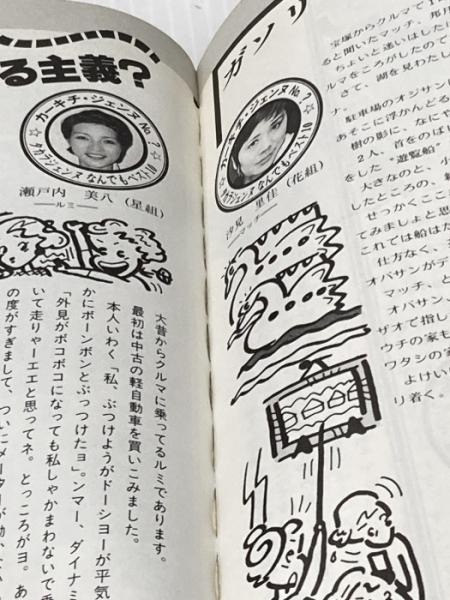 ガソリ
宝塚からクルマで1
ると聞いたマッチ、邦
ちょいと迷いはしたに
ルマをころがしたので
さて、湖を見わたし
ナ。
駐車場のオジサンに
あそこに浮かんどる
樹の影に、なにや
2人、首をのば
をした“遊覧船”
大きなのと、小
したところの、
せっかくここ
てみましょと思
これでは船はた
仕方なく、
オバサンがデ
マッチ、と
オバサン、
ザオで指し
ウチの家も
ワタシの家
よけい
り着く。
カーキチ・ジェンヌ No.?
タカラジェンヌ なんでもベスト10
汐見 里佳（花組）
――マッチ――
る主義?
カーキチ・ジェンヌ No.?
タカラジェンヌ なんでもベスト10
瀬戸内 美八（星組）
――ルミ――
大昔からクルマに乗ってるルミであります。
最初は中古の軽自動車を買いこみました。
本人いわく「私、ぶつけようがドーショーが平気
かにボーンボンとぶっつけたョ」。ンマー、ダイナミ
「外見がボコボコになっても私しゃかまわないで乗
いて走りゃーエエと思ってネ。とっころがヨ。あ
の度がすぎまして、ついにメーターが動かな